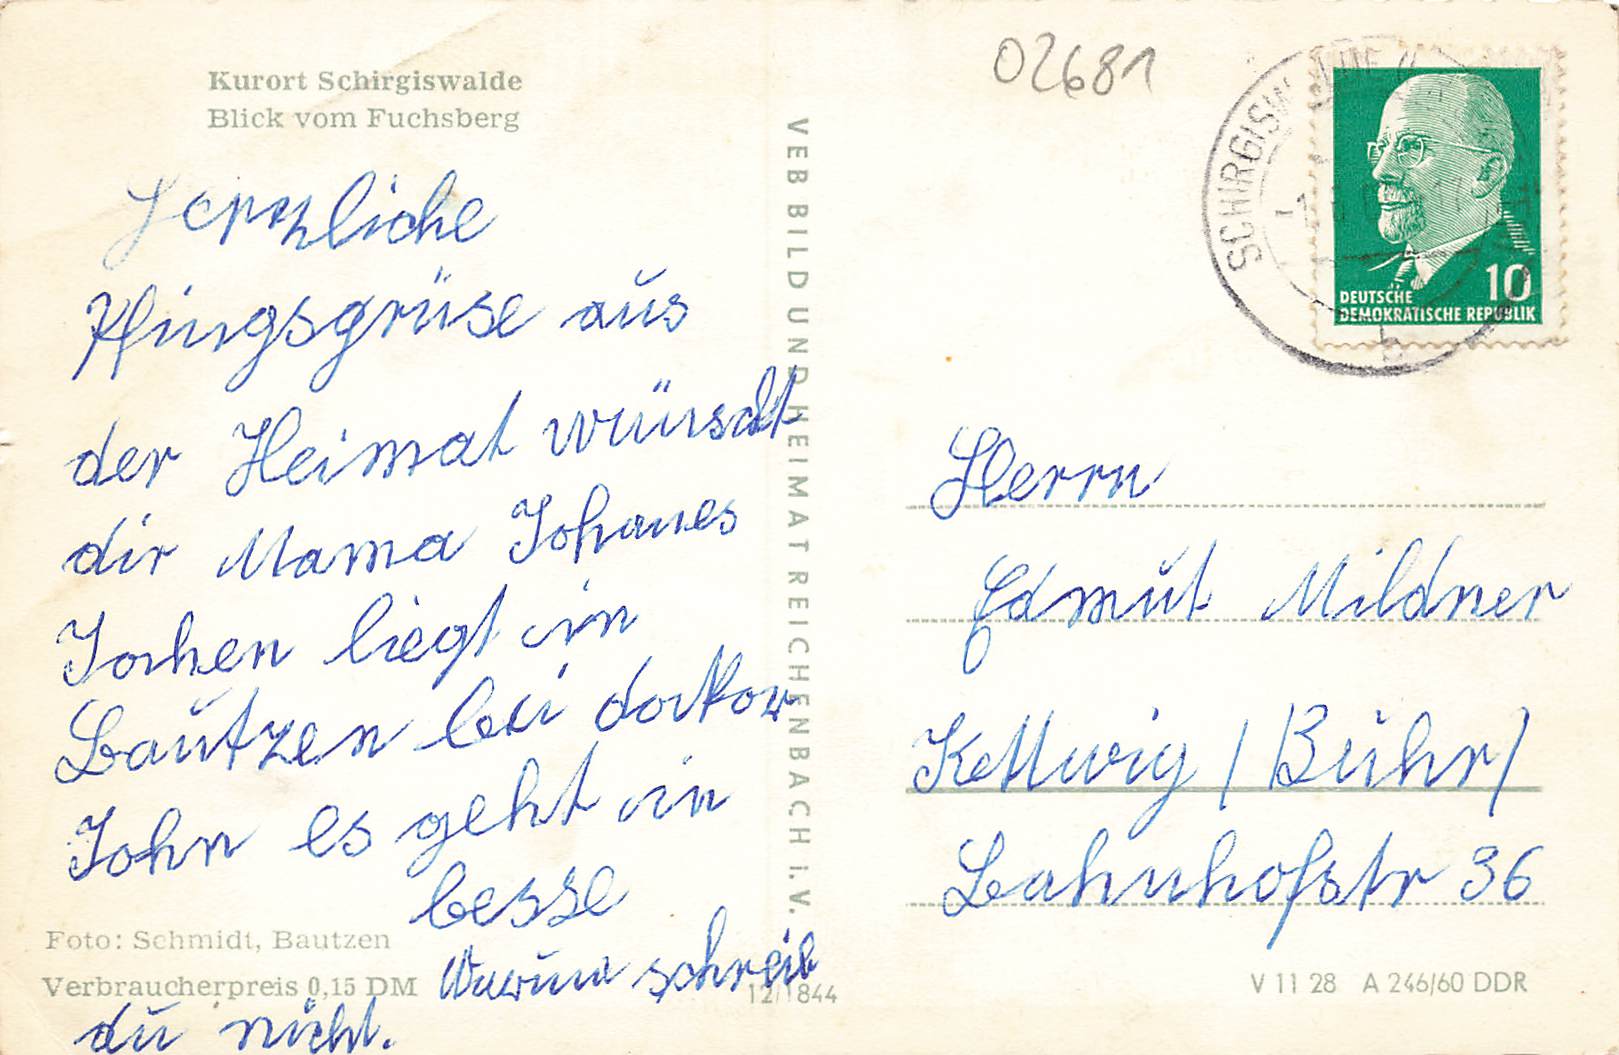 Kurort Schirgiswalde
Blick vom Fuchsberg
Herzliche
Pfingsgrüse aus
der Heimat wünscht
dir Mama Johanes
Jochen liegt in
Bautzen bei docktor
John es geht in
besse
Warum schreib
du nicht.
Foto: Schmidt, Bautzen
Verbraucherpreis 0,15 DM
12/1844
VEB BILD UND HEIMAT REICHENBACH i. V.
02681
SCHIRGISWALDE
DEUTSCHE
DEMOKRATISCHE REPUBLIK
10
b
Herrn
Edmut Mildner
Kettwig (Ruhr)
Bahnhofstr 36
V 11 28 A 246/60 DDR